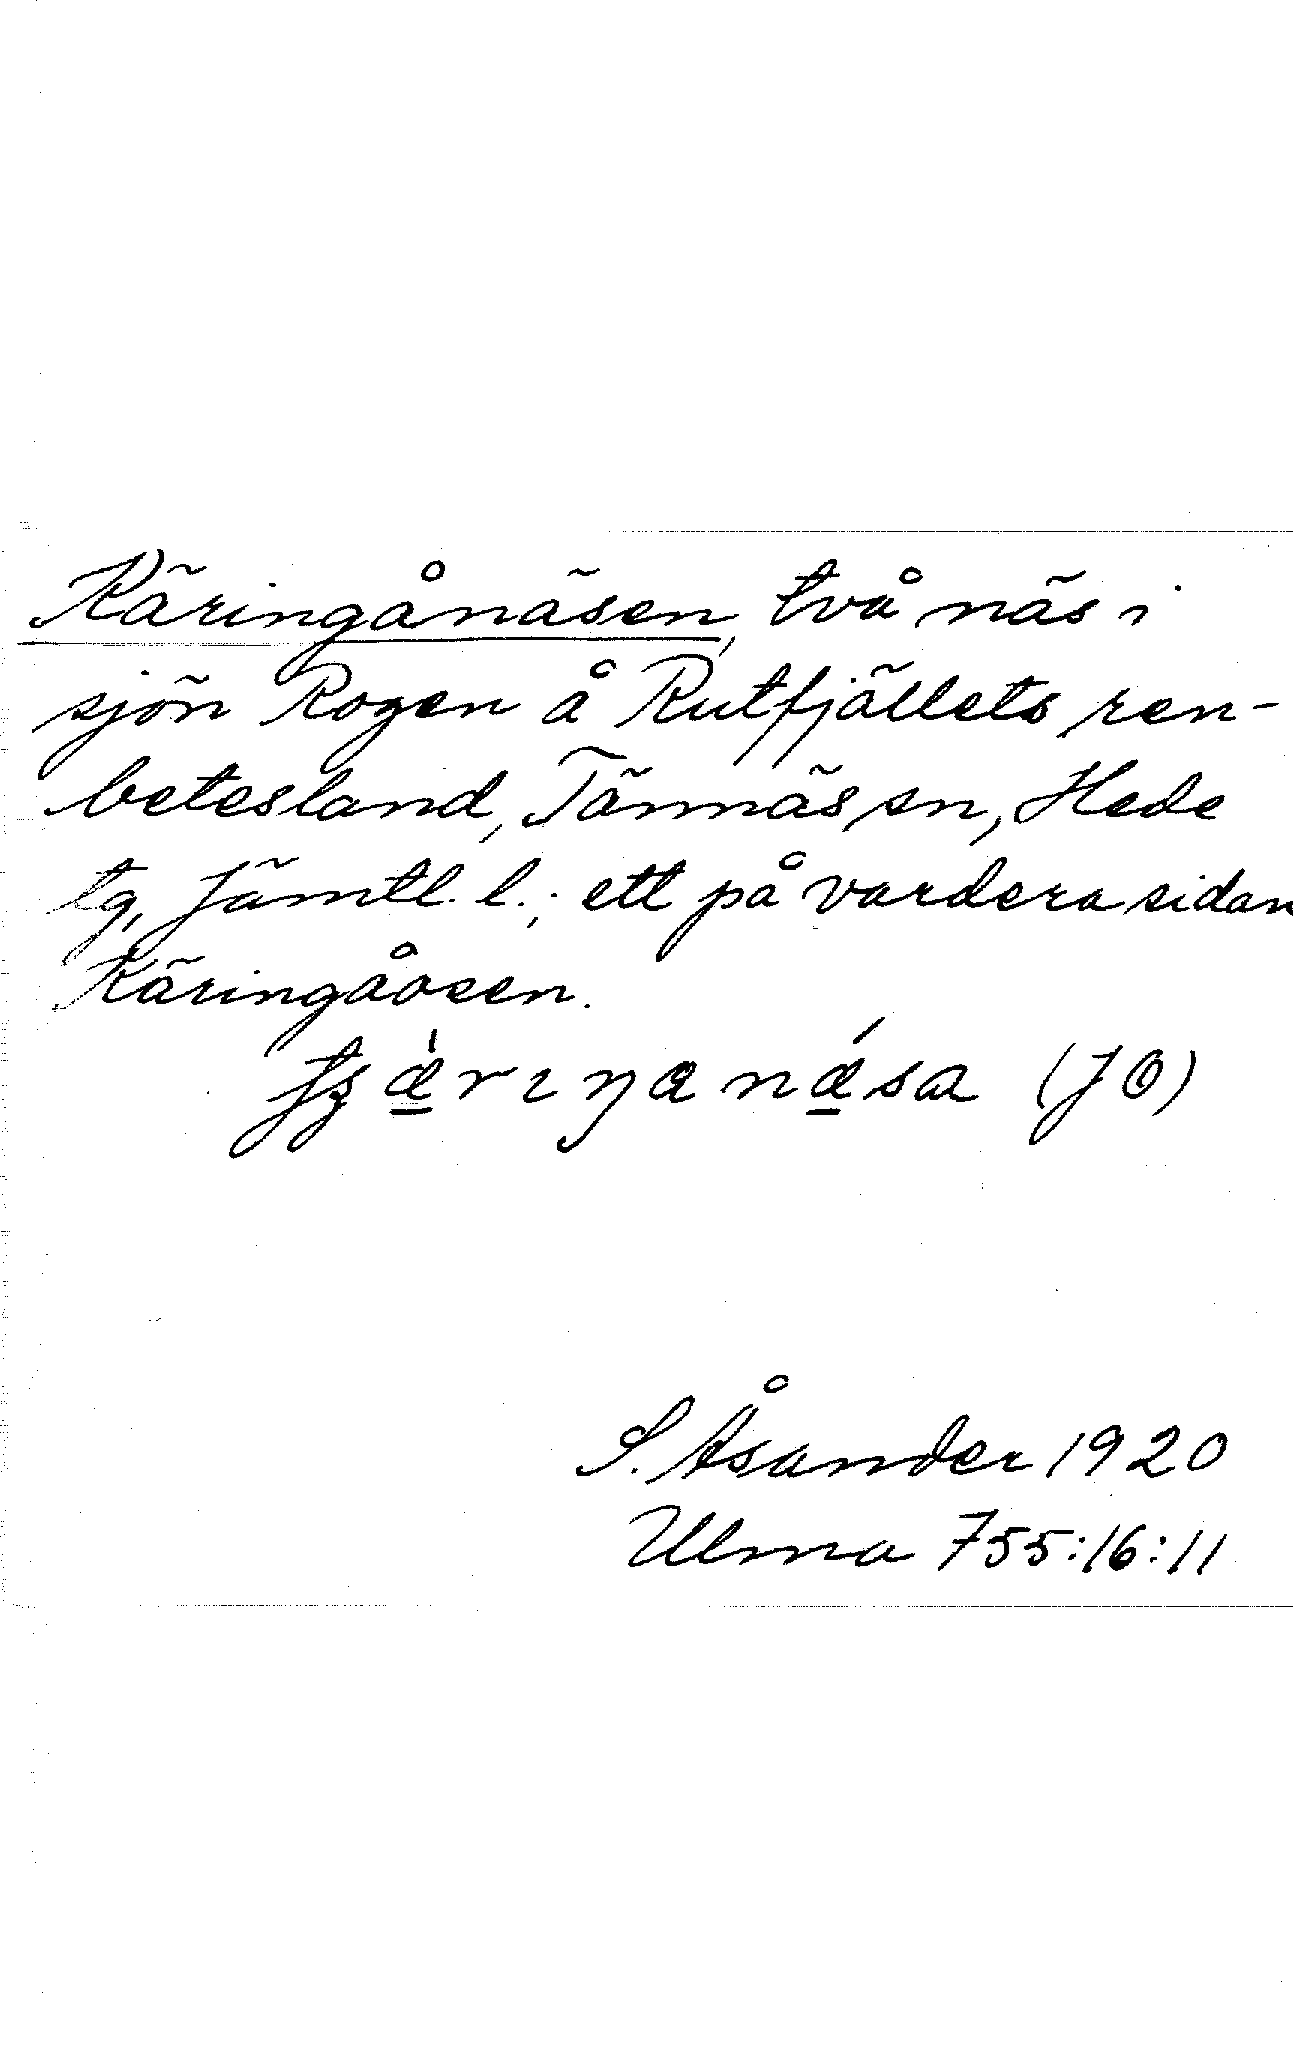 Käringånäsen, två näs i
sjön Rogen å Rutfjällets ren-
betesland, Tännäs sn, Hede
tg, Jämtl. l.; ett på vardera sidan
Käringåosen.
(JO)
S. Åsander 1920
Ulma 755:16:11